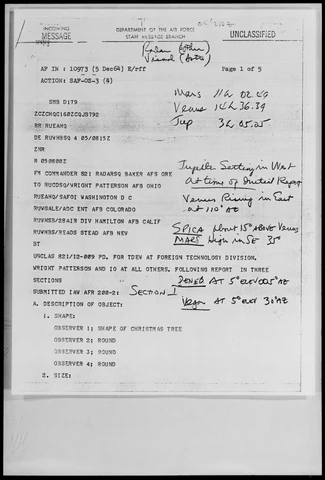 INCOMING
MESSAGE
DEPARTMENT OF THE AIR FORCE
STAFF MESSAGE BRANCH
UNCLASSIFIED
Radar (other)
Visual (Astro)
AF IN : 10973 (5 Dec64) E/rff
Page 1 of 5
ACTION: SAF-OS-3 (4)
Mars 11h 02.40
Venus 14h 36.39
Jup 3h 25.25
SMB D179
ZCZCHQC160ZCQJB792
RR RUEAHQ
DE RUWHBSQ 4 05/0815Z
ZNR
R 050800Z
FM COMMANDER 821 RADARSQ BAKER AFS ORE
TO RUCDSQ/WRIGHT PATTERSON AFB OHIO
RUEAHQ/SAFOI WASHINGTON D C
RUWGALE/ADC ENT AFB COLORADO
RUWHSB/28AIR DIV HAMILTON AFB CALIF
RUWHBS/READS STEAD AFB NEV
BT
Jupiter Setting in West
at time of Initial Report
Venus Rising in East
at 110° AZ
SPICA about 15° ABOVE Venus
MARS High in SE 35°
UNCLAS 821/12-009 PD. FOR TDEW AT FOREIGN TECHNOLOGY DIVISION,
WRIGHT PATTERSON AND IO AT ALL OTHERS, FOLLOWING REPORT IN THREE
SECTIONS
DENEB AT 5° ELEV 005° AZ
SUBMITTED IAW AFR 200-2: SECTION I
Vega AT 5° ELEV 30° AZ
A. DESCRIPTION OF OBJECT:
1. SHAPE:
OBSERVER 1; SHAPE OF CHRISTMAS TREE
OBSERVER 2; ROUND
OBSERVER 3; ROUND
OBSERVER 4; ROUND
2. SIZE: